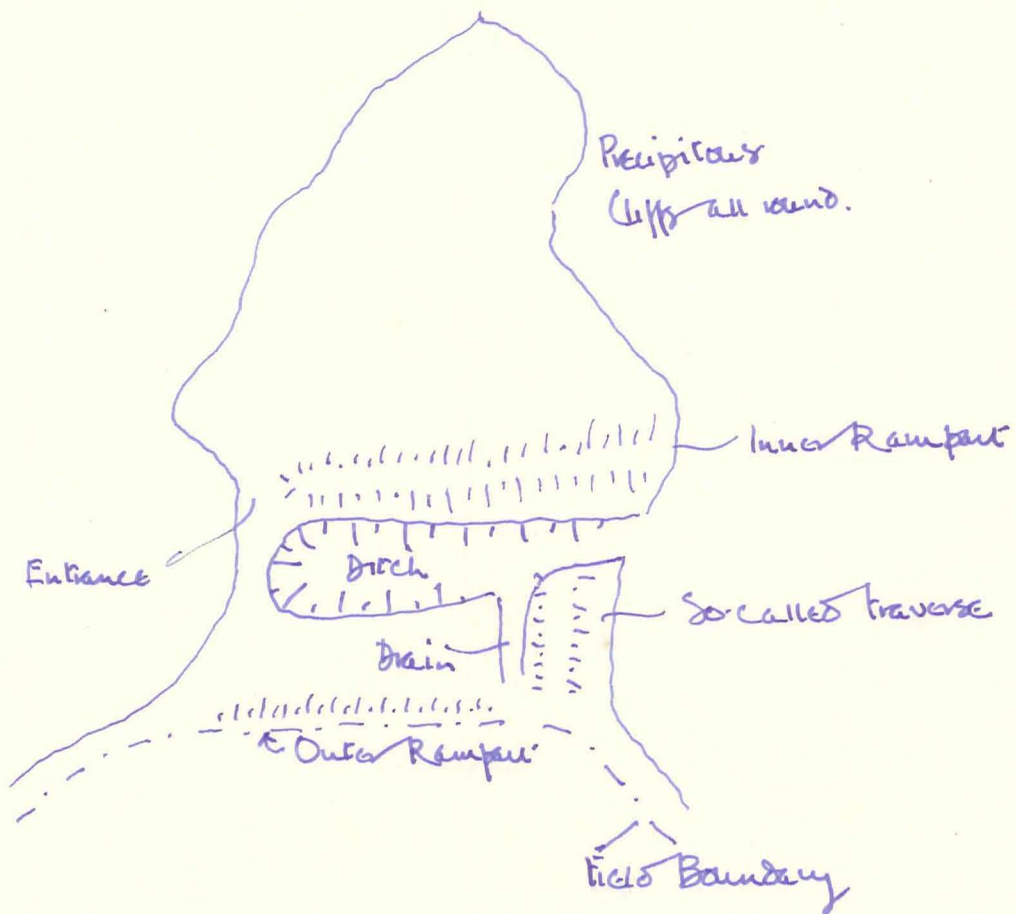 Precipitous
Cliffs all round.
Inner Rampart
Entrance
Ditch
So-called traverse
Drain
Outer Rampart
Field Boundary